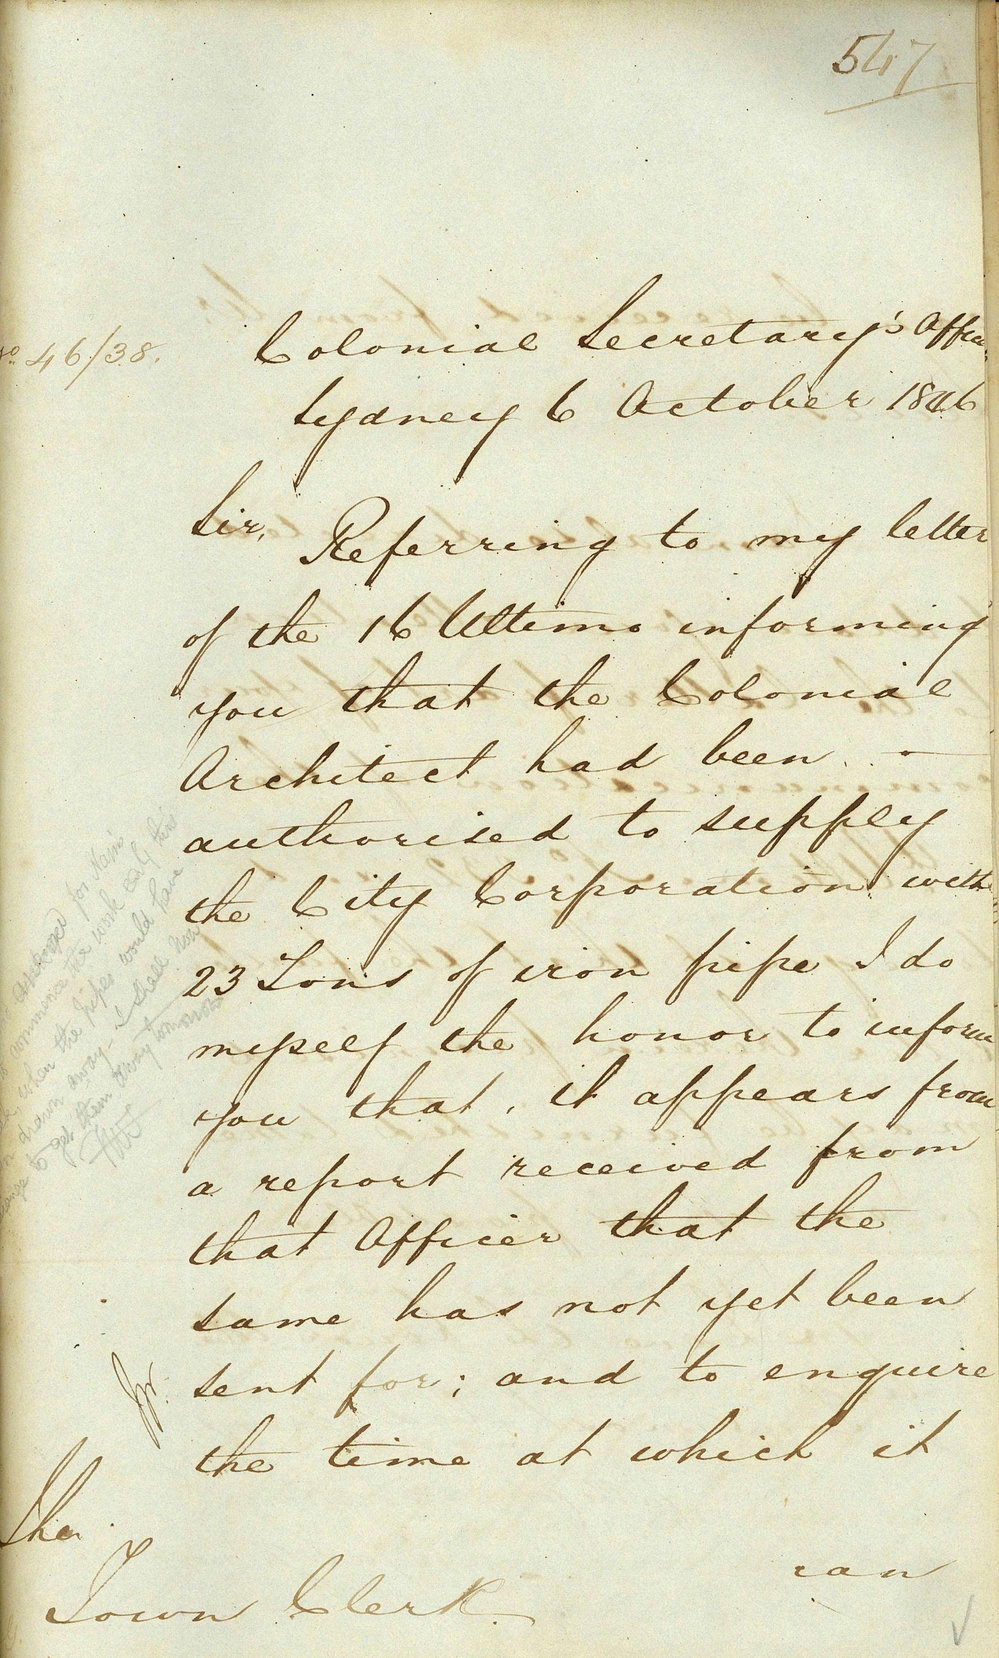 547
No 46/38.
Colonial Secretary's Office
Sydney 6 October 1846
Sir,
Referring to my letter
of the 16 Ultimo informing
you that the Colonial
Architect had been
authorised to supply
the City Corporation with
23 Tons of iron pipe I do
myself the honor to inform
you that, it appears from
a report received from
that Officer that the
same has not yet been
sent for; and to enquire
the time at which it
can
The
Town Clerk
for
commence the work early this
when the pipes would have
drawn away - I shall now
to get them away tomorrow